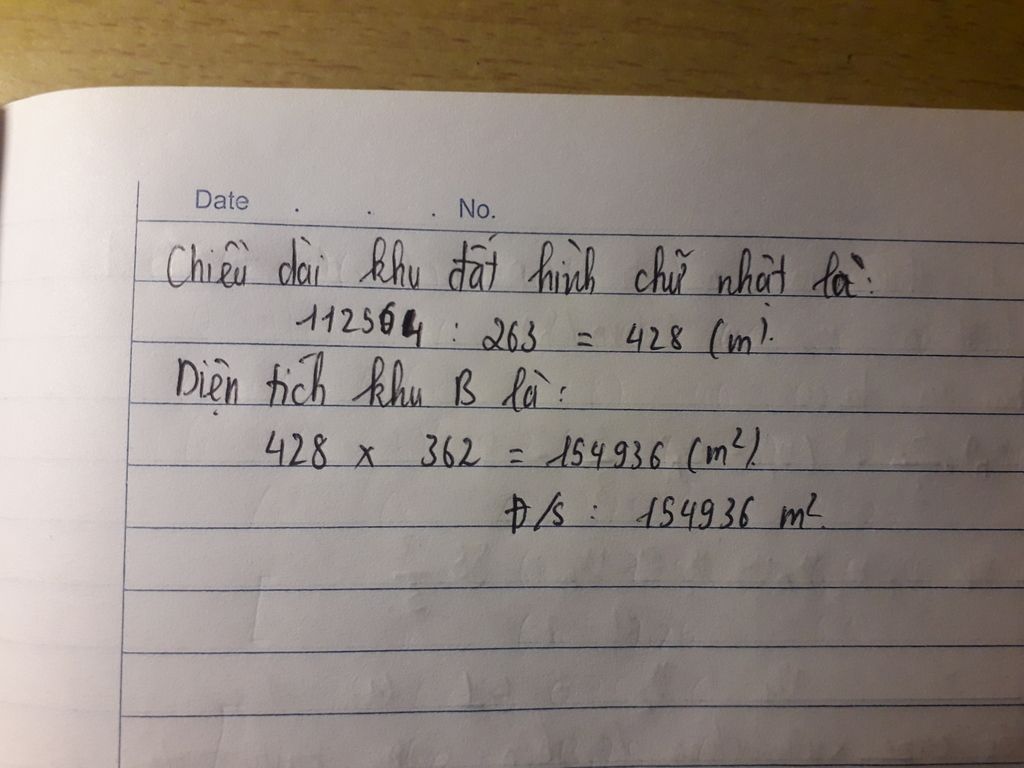 Date . . . No.
Chiều dài khu đất hình chữ nhật là:
112564 : 263 = 428 (m).
Diện tích khu B là:
428 x 362 = 154936 (m²).
Đ/s : 154936 m².